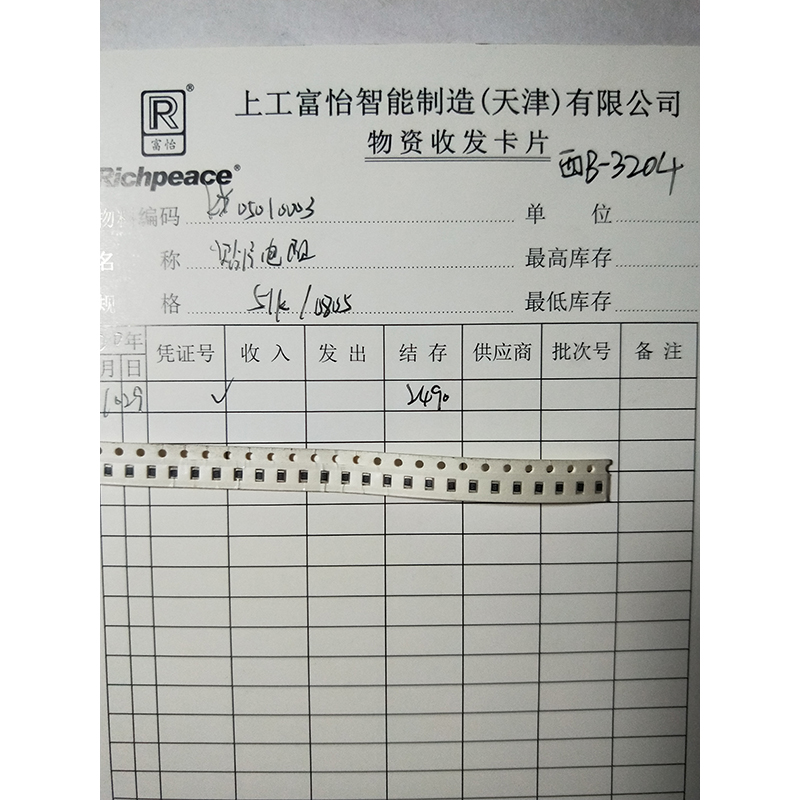 R®
富怡
Richpeace®
上工富怡智能制造(天津)有限公司
物资收发卡片
西B-3204
物 编码 05010003 单 位
名 称 贴片电阻 最高库存
规 格 51k/0805 最低库存
年 凭证号 收入 发出 结存 供应商 批次号 备注
月 日
10 29 ✓ 2490